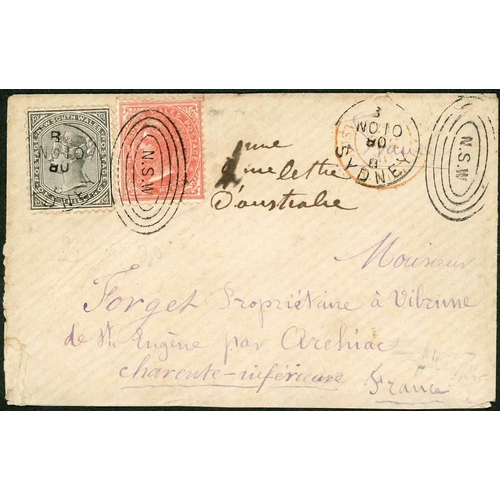 NEW SOUTH WALES POSTAGE
B
NO 10
80
N.S.W
B
NO 10
80
8
SYDNEY
N.S.W
une
lettre
d'australie
Monsieur
Forget Propriétaire à Vibrinne
de St Eugène par Archiac
charente-inférieure
France